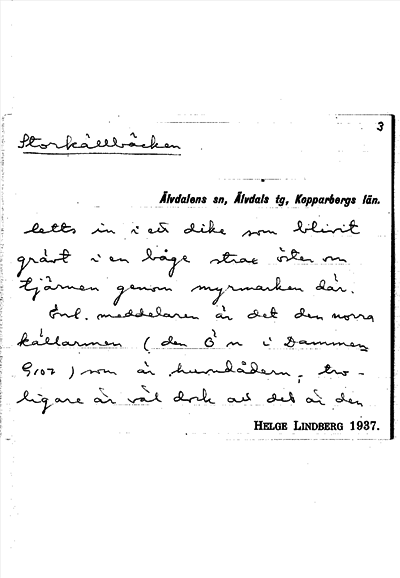 3
Storkällbäcken
Älvdalens sn, Älvdals tg, Kopparbergs län.
letts in i ett dike som blivit
grävt i en båge strax öster om
tjärnen genom myrmarken där.
Enl. meddelaren är det den norra
källarmen (den Ö n i Dammen
) som är huvudådern, tro-
ligare är väl dock att det är den
HELGE LINDBERG 1937.